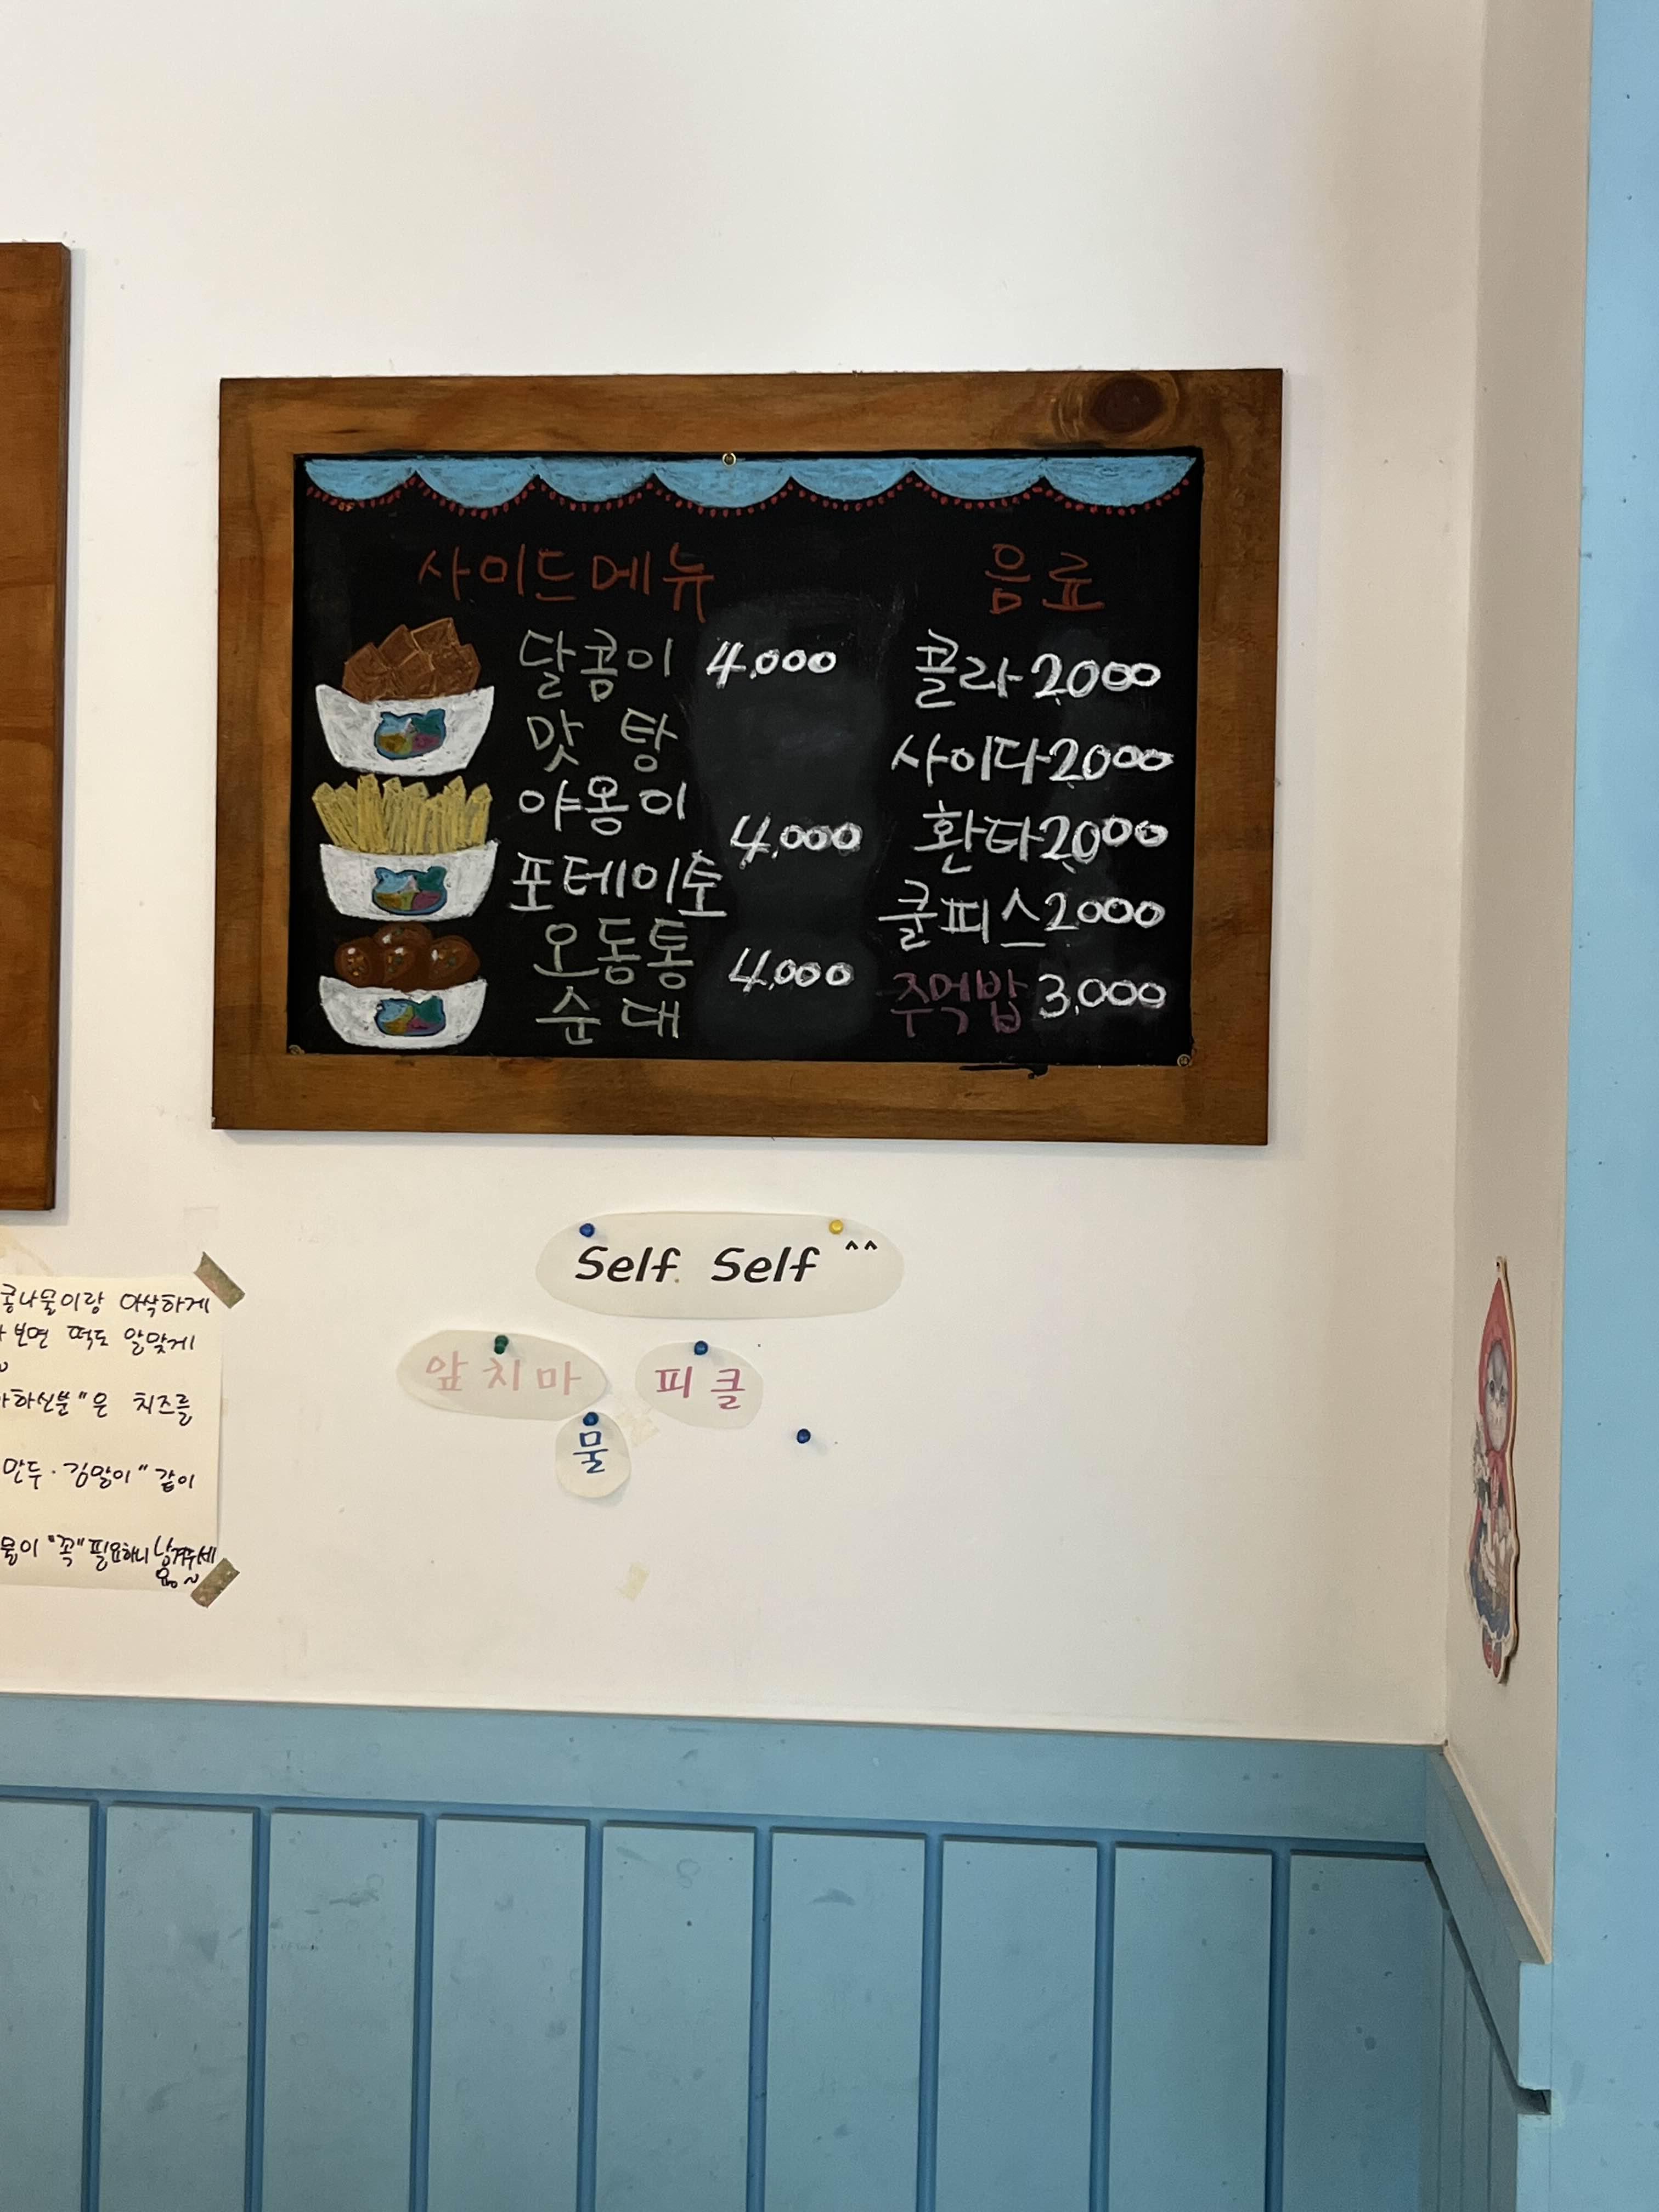 사이드메뉴
달콤이 4,000
맛탕
야옹이
포테이토 4,000
오동통
순대 4,000
음료
콜라 2000
사이다 2000
환타 2000
쿨피스 2000
주먹밥 3,000
Self Self ^^
앞치마
피클
물
콩나물이랑 아삭하게
보면 떡도 알맞게
하신분"은 치즈를
만두·김말이" 같이
물이 "꼭" 필요하니 남겨주세
요~